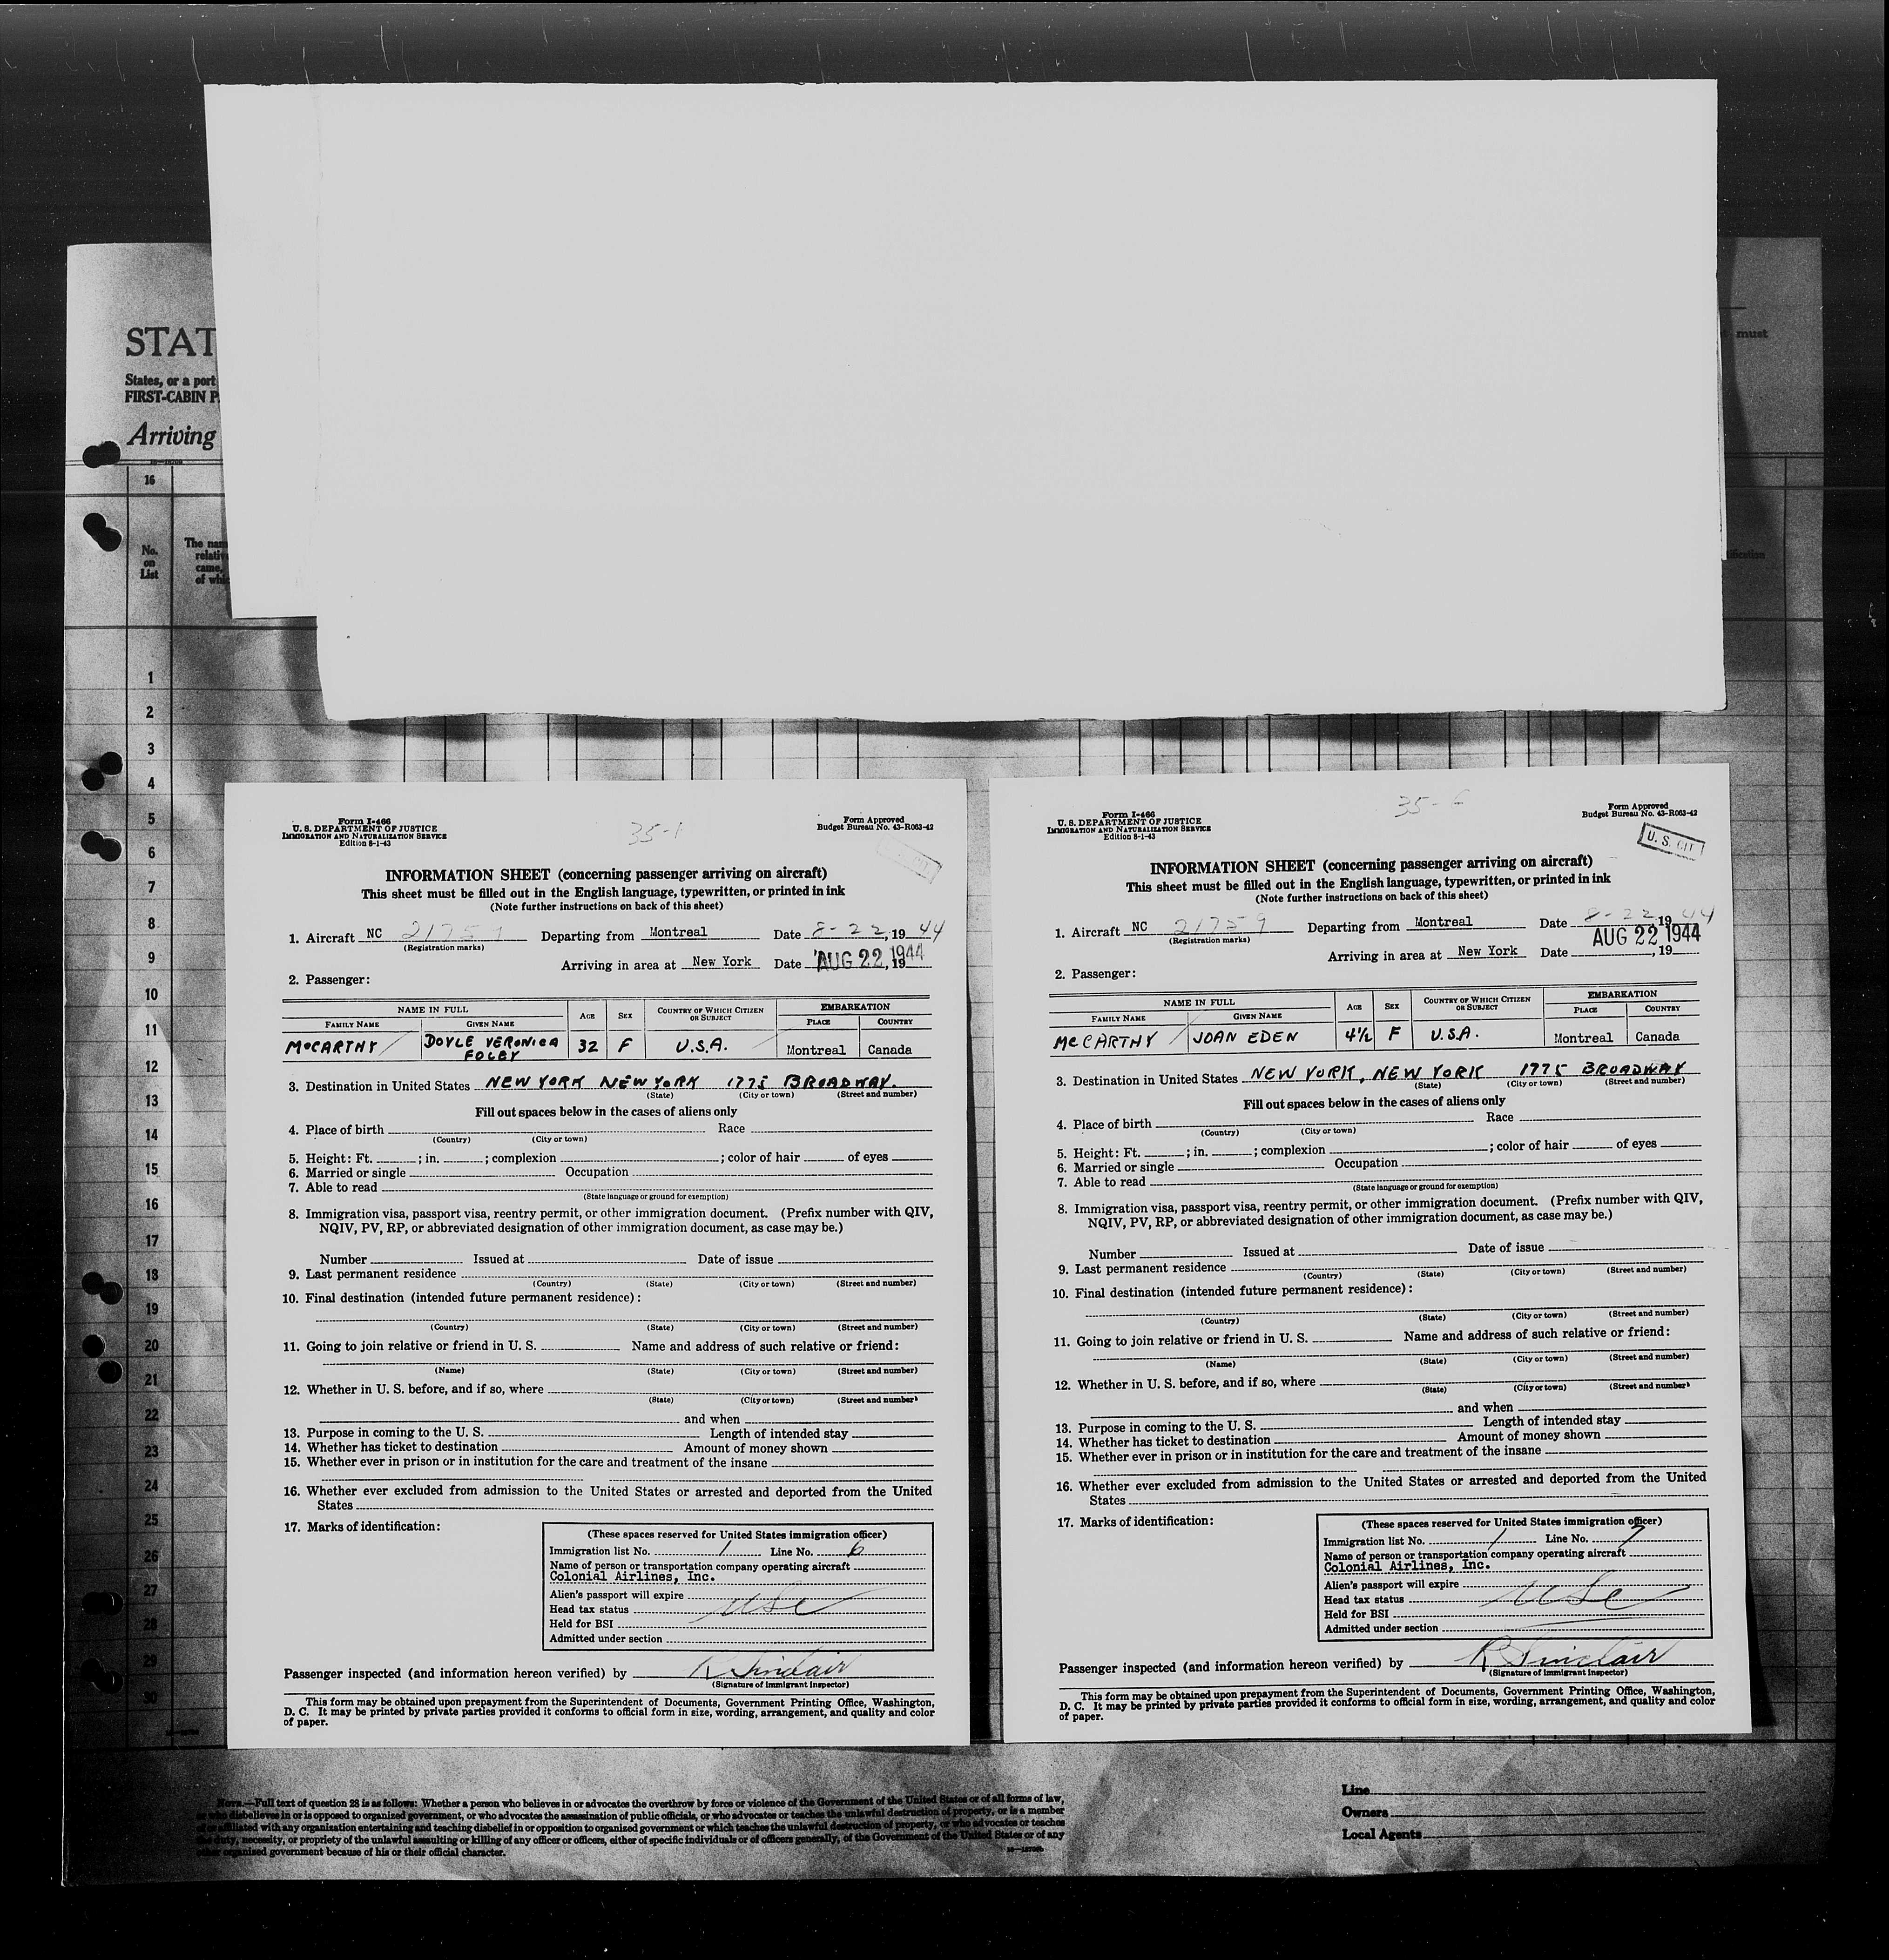 STAT
States, or a port
FIRST-CABIN P
Arriving
must
16
No.
on
List
The nam
relativ
came,
of whic
1
2
3
4
5
6
7
8
9
10
11
12
13
14
15
16
17
18
19
20
21
22
23
24
25
26
27
28
29
30
Form I-466
U. S. DEPARTMENT OF JUSTICE
IMMIGRATION AND NATURALIZATION SERVICE
Edition 8-1-43
35-1
Form Approved
Budget Bureau No. 43-R063-42
INFORMATION SHEET (concerning passenger arriving on aircraft)
This sheet must be filled out in the English language, typewritten, or printed in ink
(Note further instructions on back of this sheet)
1. Aircraft NC Departing from Montreal Date 8-22, 1944
(Registration marks)
Arriving in area at New York Date AUG 22, 1944 19
2. Passenger:
NAME IN FULL AGE SEX COUNTRY OF WHICH CITIZEN OR SUBJECT EMBARKATION
FAMILY NAME GIVEN NAME PLACE COUNTRY
McCARTHY DOYLE VERONICA FOLEY 32 F U.S.A. Montreal Canada
3. Destination in United States NEW YORK NEW YORK 1775 BROADWAY.
(State) (City or town) (Street and number)
Fill out spaces below in the cases of aliens only
4. Place of birth Race
(Country) (City or town)
5. Height: Ft. ; in. ; complexion ; color of hair of eyes
6. Married or single Occupation
7. Able to read
(State language or ground for exemption)
8. Immigration visa, passport visa, reentry permit, or other immigration document. (Prefix number with QIV,
NQIV, PV, RP, or abbreviated designation of other immigration document, as case may be.)
Number Issued at Date of issue
9. Last permanent residence
(Country) (State) (City or town) (Street and number)
10. Final destination (intended future permanent residence):
(Country) (State) (City or town) (Street and number)
11. Going to join relative or friend in U. S. Name and address of such relative or friend:
(Name) (State) (City or town) (Street and number)
12. Whether in U. S. before, and if so, where
(State) (City or town) (Street and number)
and when
13. Purpose in coming to the U. S. Length of intended stay
14. Whether has ticket to destination Amount of money shown
15. Whether ever in prison or in institution for the care and treatment of the insane
16. Whether ever excluded from admission to the United States or arrested and deported from the United
States
17. Marks of identification:
(These spaces reserved for United States immigration officer)
Immigration list No. 1 Line No. 6
Name of person or transportation company operating aircraft
Colonial Airlines, Inc.
Alien's passport will expire
Head tax status USC
Held for BSI
Admitted under section
Passenger inspected (and information hereon verified) by R Sinclair
(Signature of immigrant inspector)
This form may be obtained upon prepayment from the Superintendent of Documents, Government Printing Office, Washington,
D. C. It may be printed by private parties provided it conforms to official form in size, wording, arrangement, and quality and color
of paper.
Form I-466
U. S. DEPARTMENT OF JUSTICE
IMMIGRATION AND NATURALIZATION SERVICE
Edition 8-1-43
35-6
Form Approved
Budget Bureau No. 43-R063-42
U. S. CIT
INFORMATION SHEET (concerning passenger arriving on aircraft)
This sheet must be filled out in the English language, typewritten, or printed in ink
(Note further instructions on back of this sheet)
1. Aircraft NC 21759 Departing from Montreal Date 8-22, 1944
(Registration marks)
Arriving in area at New York Date AUG 22 1944, 19
2. Passenger:
NAME IN FULL AGE SEX COUNTRY OF WHICH CITIZEN OR SUBJECT EMBARKATION
FAMILY NAME GIVEN NAME PLACE COUNTRY
McCARTHY JOAN EDEN 4½ F U.S.A. Montreal Canada
3. Destination in United States NEW YORK, NEW YORK 1775 BROADWAY
(State) (City or town) (Street and number)
Fill out spaces below in the cases of aliens only
4. Place of birth Race
(Country) (City or town)
5. Height: Ft. ; in. ; complexion ; color of hair of eyes
6. Married or single Occupation
7. Able to read
(State language or ground for exemption)
8. Immigration visa, passport visa, reentry permit, or other immigration document. (Prefix number with QIV,
NQIV, PV, RP, or abbreviated designation of other immigration document, as case may be.)
Number Issued at Date of issue
9. Last permanent residence
(Country) (State) (City or town) (Street and number)
10. Final destination (intended future permanent residence):
(Country) (State) (City or town) (Street and number)
11. Going to join relative or friend in U. S. Name and address of such relative or friend:
(Name) (State) (City or town) (Street and number)
12. Whether in U. S. before, and if so, where
(State) (City or town) (Street and number)
and when
13. Purpose in coming to the U. S. Length of intended stay
14. Whether has ticket to destination Amount of money shown
15. Whether ever in prison or in institution for the care and treatment of the insane
16. Whether ever excluded from admission to the United States or arrested and deported from the United
States
17. Marks of identification:
(These spaces reserved for United States immigration officer)
Immigration list No. 1 Line No. 7
Name of person or transportation company operating aircraft
Colonial Airlines, Inc.
Alien's passport will expire
Head tax status USC
Held for BSI
Admitted under section
Passenger inspected (and information hereon verified) by R Sinclair
(Signature of immigrant inspector)
This form may be obtained upon prepayment from the Superintendent of Documents, Government Printing Office, Washington,
D. C. It may be printed by private parties provided it conforms to official form in size, wording, arrangement, and quality and color
of paper.
NOTE.—Full text of question 28 is as follows: Whether a person who believes in or advocates the overthrow by force or violence of the Government of the United States or of all forms of law,
or who disbelieves in or is opposed to organized government, or who advocates the assassination of public officials, or who advocates or teaches the unlawful destruction of property, or is a member
of or affiliated with any organization entertaining and teaching disbelief in or opposition to organized government or which teaches the unlawful destruction of property, or who advocates or teaches
the duty, necessity, or propriety of the unlawful assaulting or killing of any officer or officers, either of specific individuals or of officers generally, of the Government of the United States or of any
other organized government because of his or their official character.
Line
Owners
Local Agents